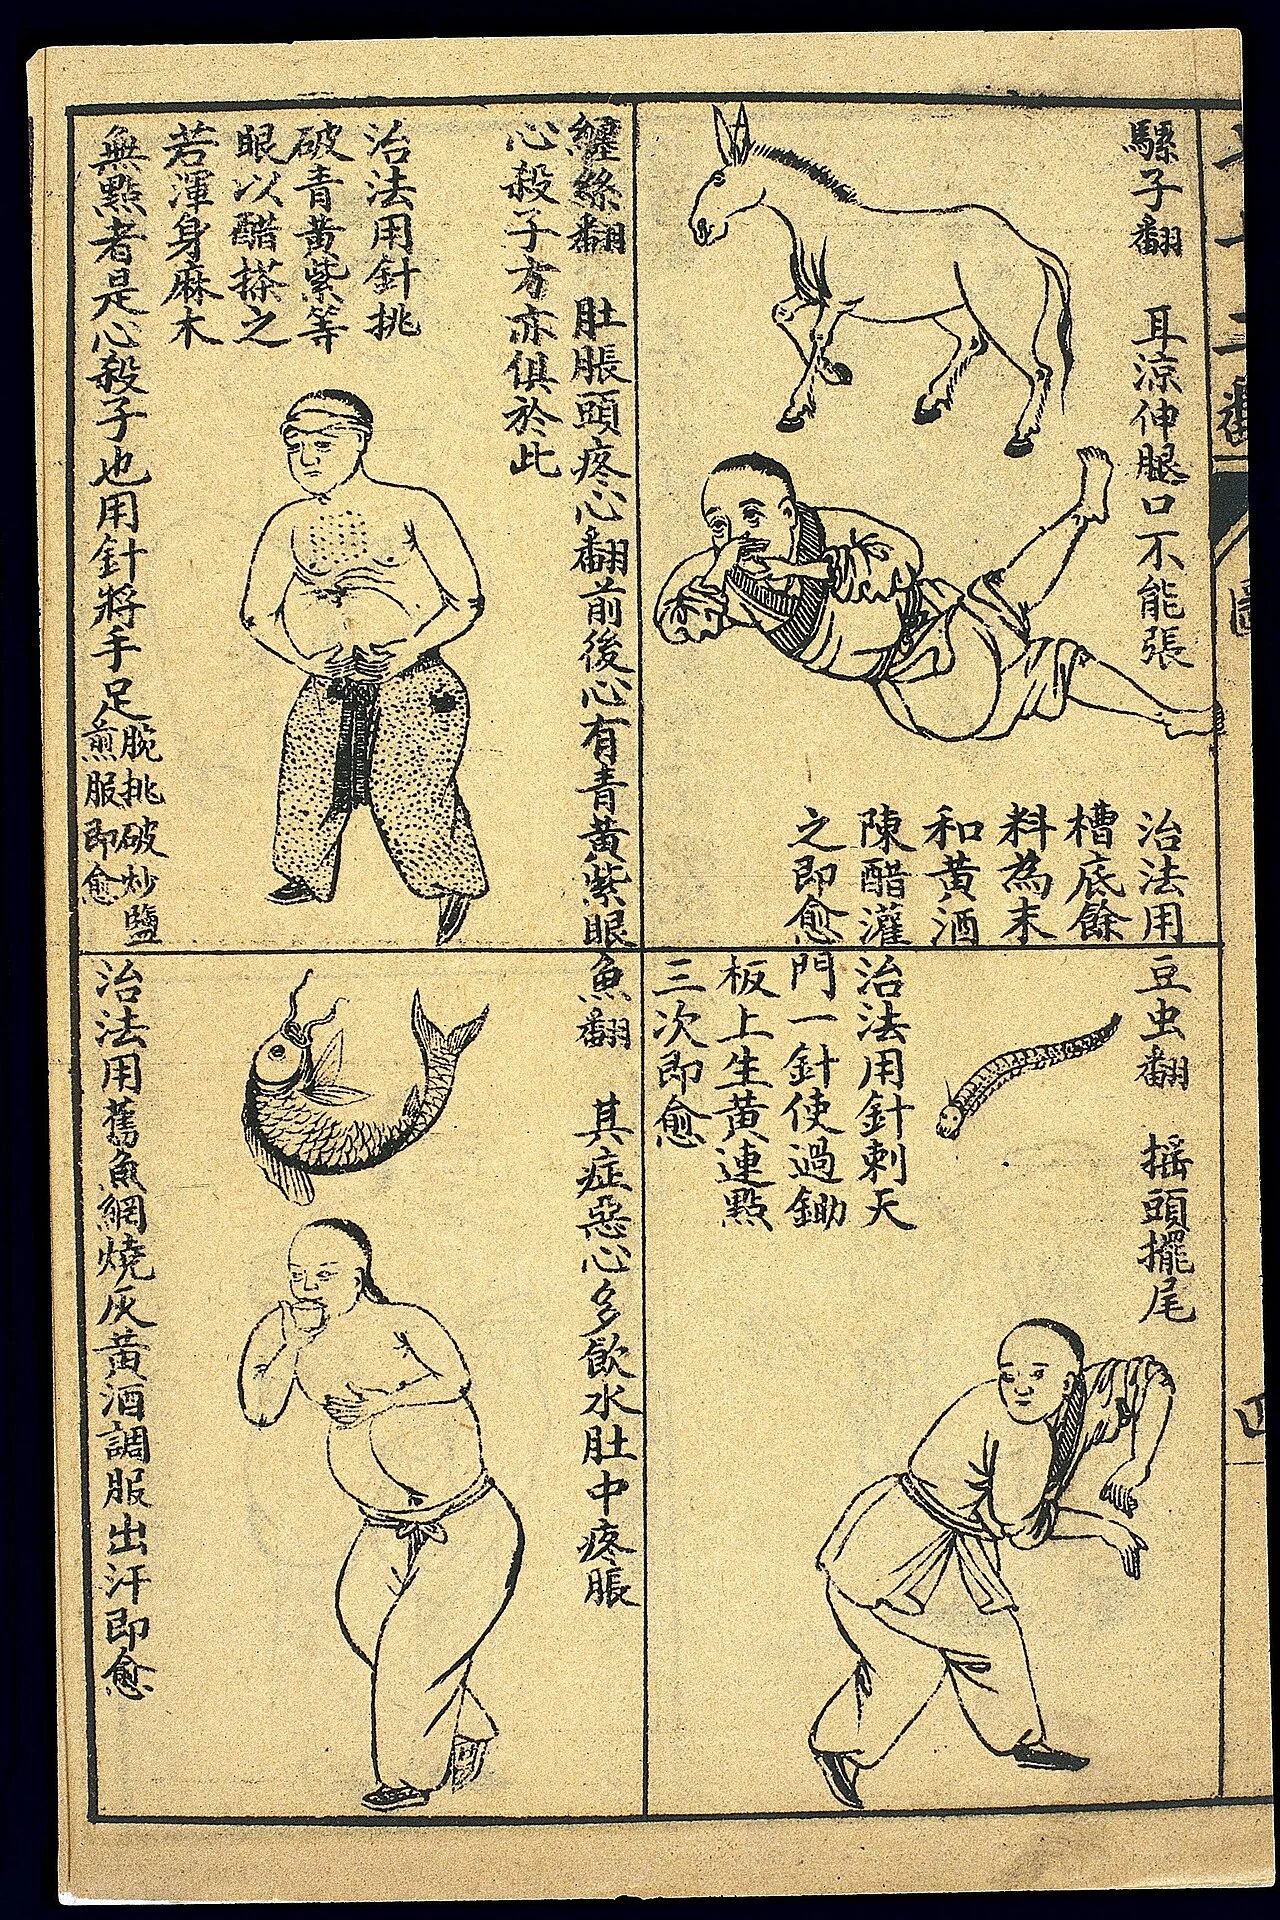 騾子翻　耳涼伸腿口不能張
治法用
槽底餘
料為末
和黄酒
陳醋灌
之即愈
纏絲翻　肚脹頭疼心翻前後心有青黄紫眼
心殺子方亦俱於此
治法用針挑
破青黄紫等
眼以醋搽之
若渾身麻木
無點者是心殺子也用針將手足
腕挑破炒鹽
煎服即愈
豆虫翻　搖頭擺尾
治法用針刺天
門一針使過鋤
板上生黄連點
三次即愈
魚翻　其症惡心多飲水肚中疼脹
治法用舊魚網燒灰黄酒調服出汗即愈